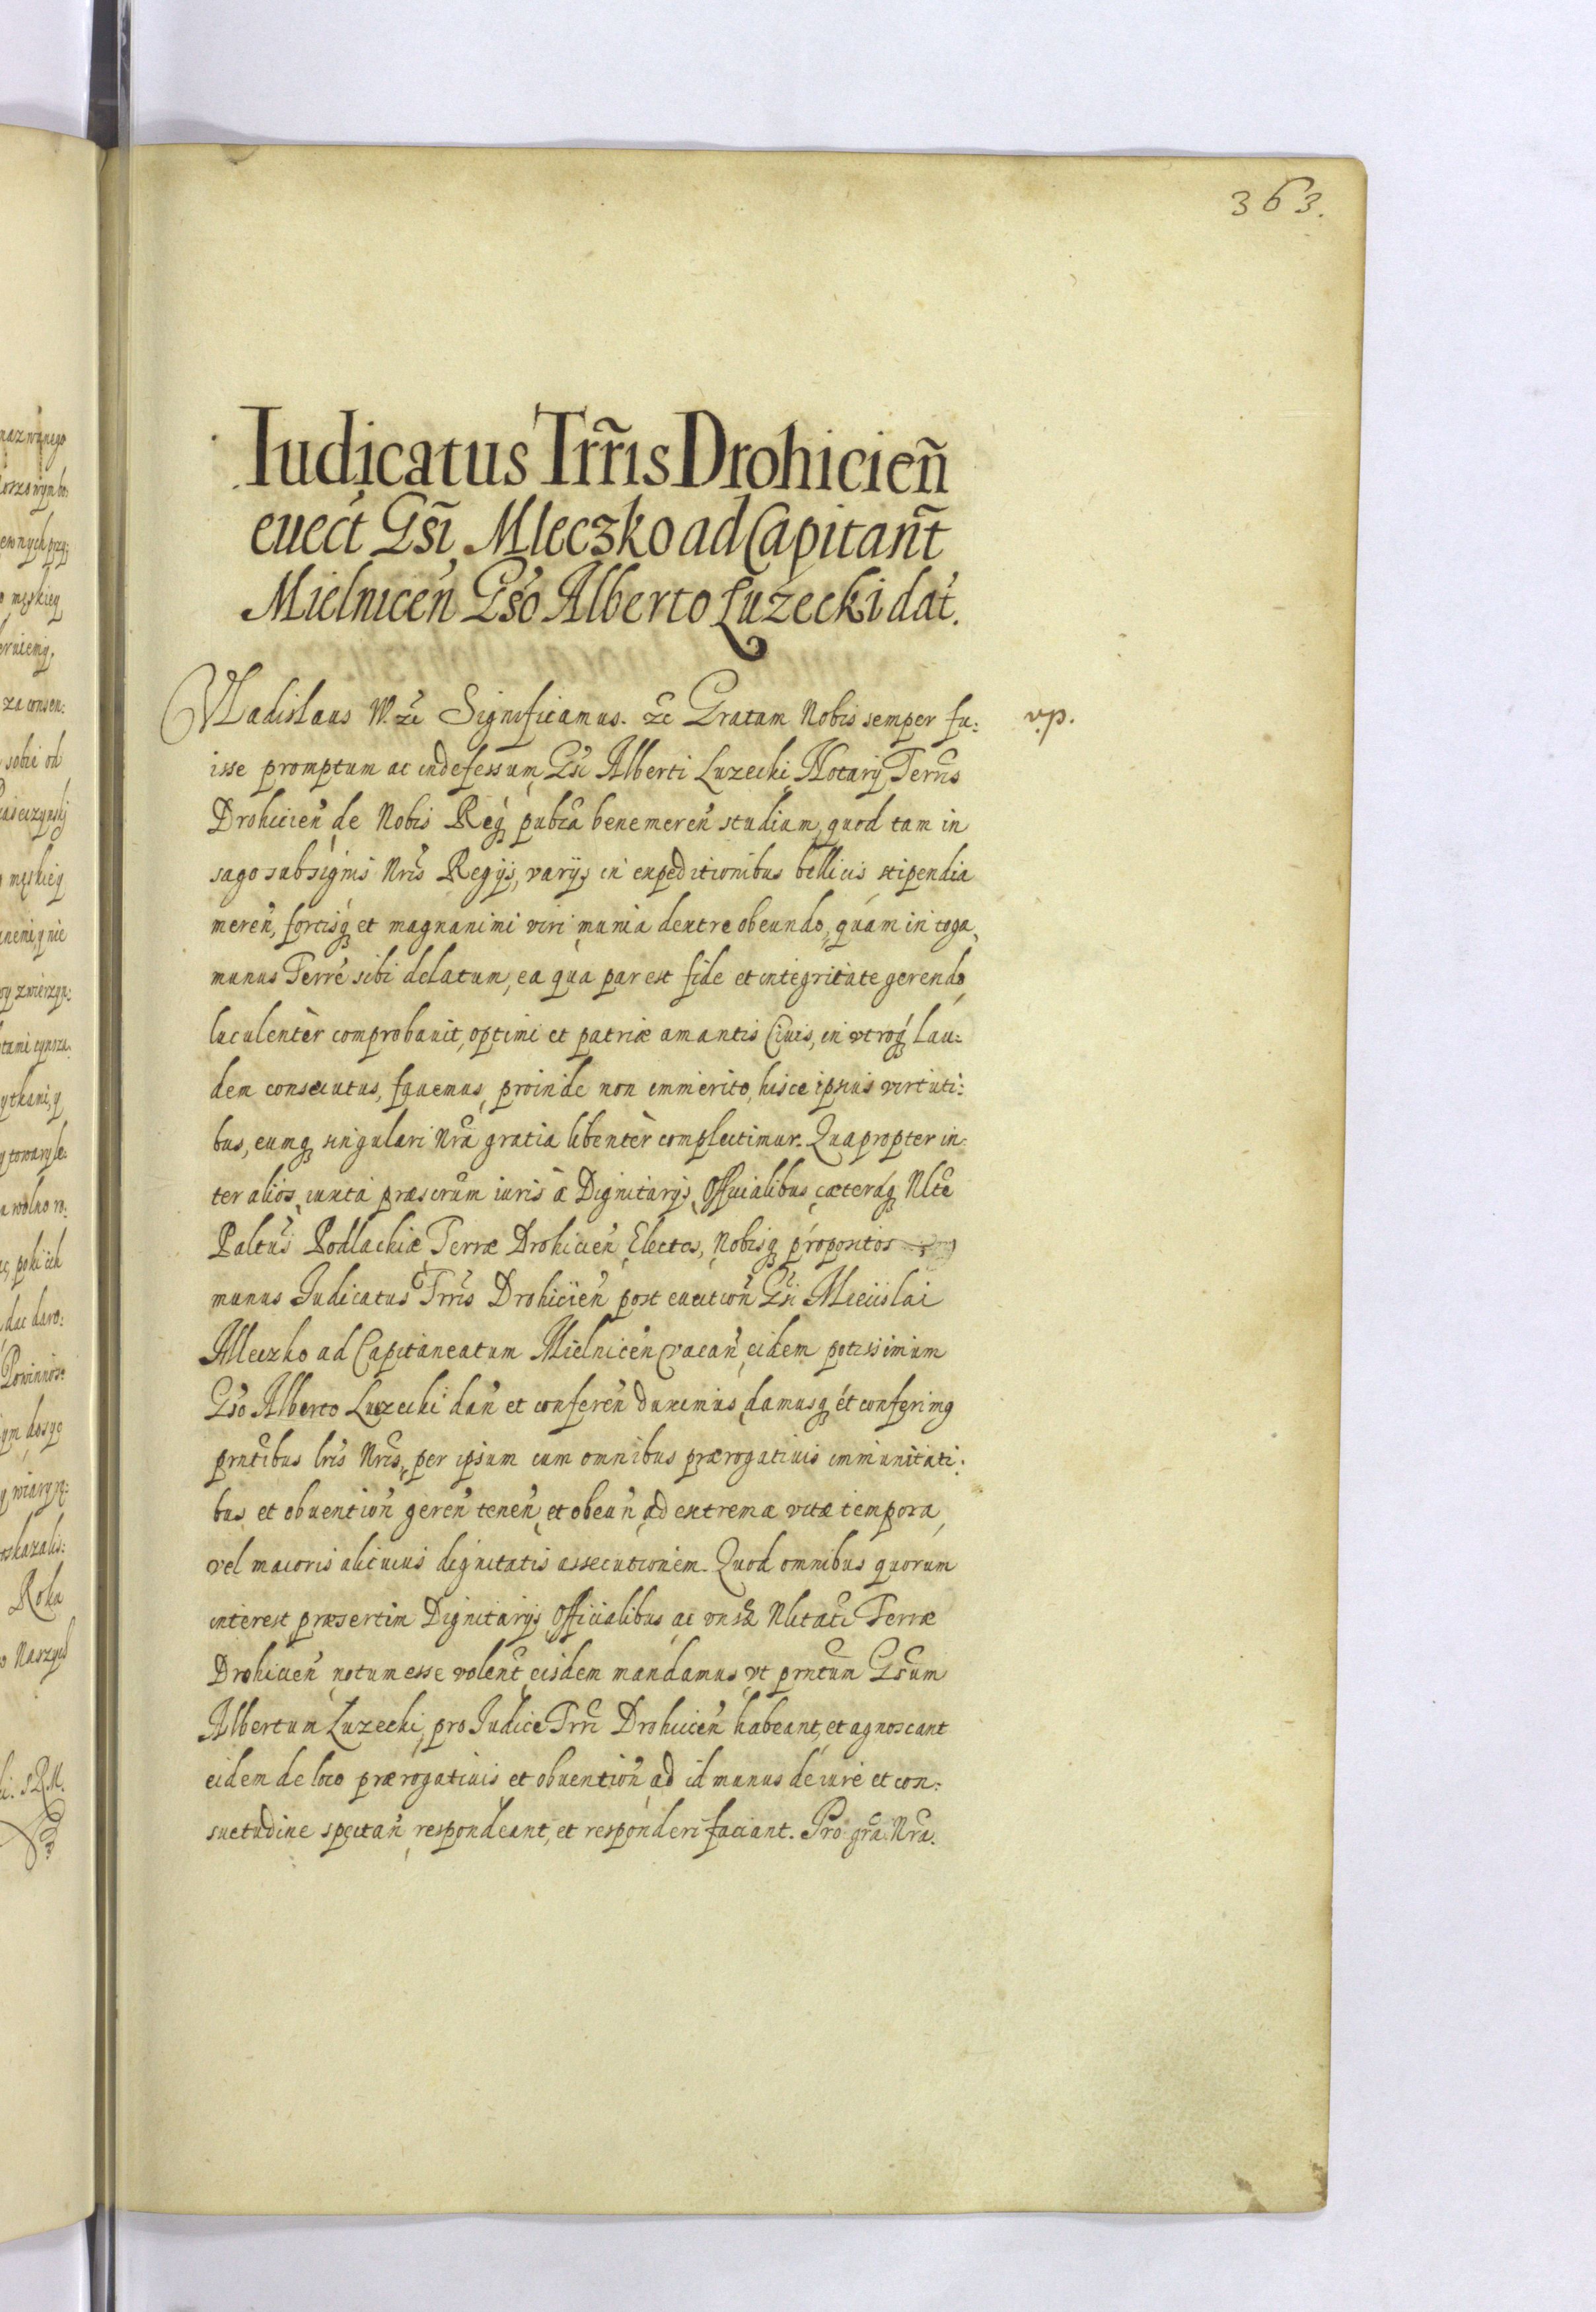 363.
Iudicatus Trr̃is Drohicien̄
evect Gs̃i Mleczko ad Capitan̄t
Mielnicen̄ Gs̃o Alberto Luzecki dat.
Vladislaus IV. &c Significamus. &c Gratam Nobis semper fu:
v.p.
isse promptum ac indefessum Gs̃i Alberti Luzecki Notarij Terrĩs
Drohicien̄ de Nobis Req; publ̃ca benemeren̄ studium, quod tam in
sago sub signis Nrĩs Regijs, varijs in expeditionibus bellicis stipendia
meren̄, fortisq; et magnanimi viri munia dextre obeundo, quam in toga
munus Terrẽ sibi delatum, ea qua par est fide et integritate gerendo
luculentèr comprobauit, optimi et patriæ amantis Ciuis, in vtroq; lau:
dem consecutus, fauemus proinde non immerito hisce ipsius virtuti:
bus, eumq; singulari Nrã gratia libentèr complectimur. Quapropter in:
ter alios iuxta præscrũm iuris à Dignitarijs Officialibus cæteráq; Nltẽ
Paltũs Podlachiæ Terræ Drohicien̄ Electos, Nobisq; propositos
munus Iudicatus Trrĩs Drohicien̄ post euection̄ Gs̃i Miecislai
Mleczko ad Capitaneatum Mielnicen̄ vacan̄ eidem potissimum
Gs̃o Alberto Luzecki dan̄ et conferen̄ duximus damusq; et conferimq
prntĩbus lrĩs Nrĩs, per ipsum cum omnibus prærogatiuis immunitati:
bus et obuention̄ geren̄ tenen̄ et obeun̄ ad extrema vitæ tempora
vel maioris alicuius dignitatis assecutionem. Quod omnibus quorum
interest præsertim Dignitarijs Officialibus ac vnsæ Nlitatĩ Terræ
Drohicien̄ notum esse volent̃ eisdem mandamus vt prntũm Gsũm
Albertum Luzecki, pro Iudice Trrĩ Drohicien̄ habeant, et agnoscant
eidem de loco prærogatiuis et obuention̄ ad id munus de iure et con:
suetudine spectan̄ respondeant, et responderi faciant. Pro grã Nrã.